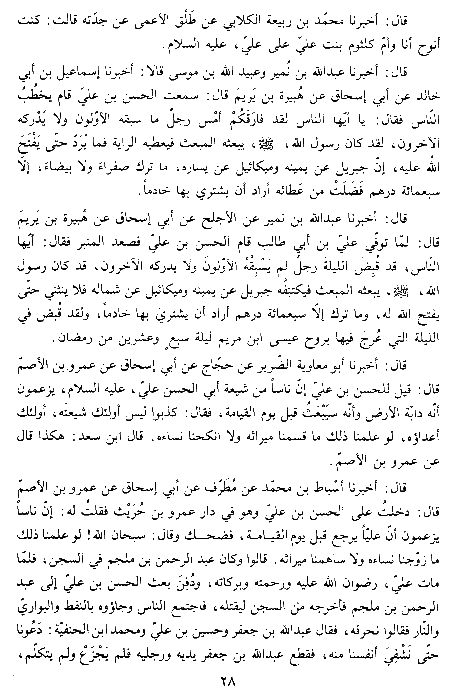 قال: أخبرنا محمّد بن ربيعة الكلابي عن طَلْق الأعمى عن جدّته قالت: كنت
أنوح أنا وأمّ كلثوم بنت عليّ على عليّ، عليه السلام.
قال: أخبرنا عبدالله بن نُمير وعبيد الله بن موسى قالا: أخبرنا إسماعيل بن أبي
خالد عن أبي إسحاق عن هُبيرة بن يَريمَ قال: سمعت الحسن بن عليّ قام يخطُبُ
النّاس فقال: يا أيّها الناس لقد فارَقَكُمْ أمْس رجلٌ ما سبقه الأوّلون ولا يُدْركه
الآخرون، لقد كان رسول الله، ﷺ، يبعثه المبعث فيعطيه الراية فما يُرَدّ حتّى يَفْتَحَ
الله عليه، إنّ جبريل عن يمينه وميكائيل عن يساره، ما ترك صفراءَ ولا بيضاءَ، إلّا
سبعمائة درهم فَضَلَتْ من عَطائه أراد أن يشتري بها خادماً.
قال: أخبرنا عبدالله بن نمير عن الأجلح عن أبي إسحاق عن هُبيرة بن يَريمَ
قال: لمّا توفّي عليّ بن أبي طالب قام الحسن بن عليّ فصعد المنبر فقال: أيّها
النّاس، قد قُبِضَ الليلة رجلٌ لم يَسْبِقْهُ الأوّلونَ ولا يدركه الآخرون، قد كان رسول
الله، ﷺ، يبعثه المبعث فيكتنفُه جبريل عن يمينه وميكائيل عن شماله فلا ينثني حتّى
يفتح الله له، وما ترك إلّا سبعمائة درهم أراد أن يشتري بها خادماً، ولقد قُبض في
الليلة التي عُرجَ فيها بروح عيسى ابن مريم ليلة سبعٍ وعشرين من رمضان.
قال: أخبرنا أبو معاوية الضّرير عن حجّاج عن أبي إسحاق عن عمرو بن الأصمّ
قال: قيل للحسن بن عليّ إنّ ناساً من شيعة أبي الحسن عليّ، عليه السلام، يزعمون
أنّه دابّة الأرض وأنّه سَيُبْعَثُ قبل يوم القيامة، فقال: كذبوا ليس أولئك شيعتَه، أولئك
أعداؤه، لو علمنا ذلك ما قسمنا ميراثَه ولا انكحنا نساءه. قال ابن سعد: هكذا قال
عن عمرو بن الأصمّ.
قال: أخبرنا أسْباط بن محمّد عن مُطَرّف عن أبي إسحاق عن عمرو بن الأصمّ
قال: دخلتُ على الحسن بن عليّ وهو في دار عمرو بن حُرَيْث فقلت له: إنّ ناساً
يزعمون أنّ عليّاً يرجع قبل يوم القيامة، فضحك وقال: سبحان الله! لو علمنا ذلك
ما زوّجنا نساءه ولا ساهمنا ميراثه. قالوا وكان عبد الرحمن بن ملجم في السجن، فلمّا
مات عليّ، رضوان الله عليه ورحمته وبركاته، ودُفِنَ بعث الحسن بن عليّ إلى عبد
الرحمن بن ملجم فأخرجه من السجن ليقتله، فاجتمع الناس وجاؤوه بالنفط والبواريّ
والنّار فقالوا نحرقه، فقال عبدالله بن جعفر وحسين بن عليّ ومحمد ابن الحنفيّة: دَعُونا
حتّى نَشْفِيَ أنفسنا منه، فقطع عبدالله بن جعفر يديه ورجليه فلم يَجْزَعْ ولم يتكلّم،
٢٨